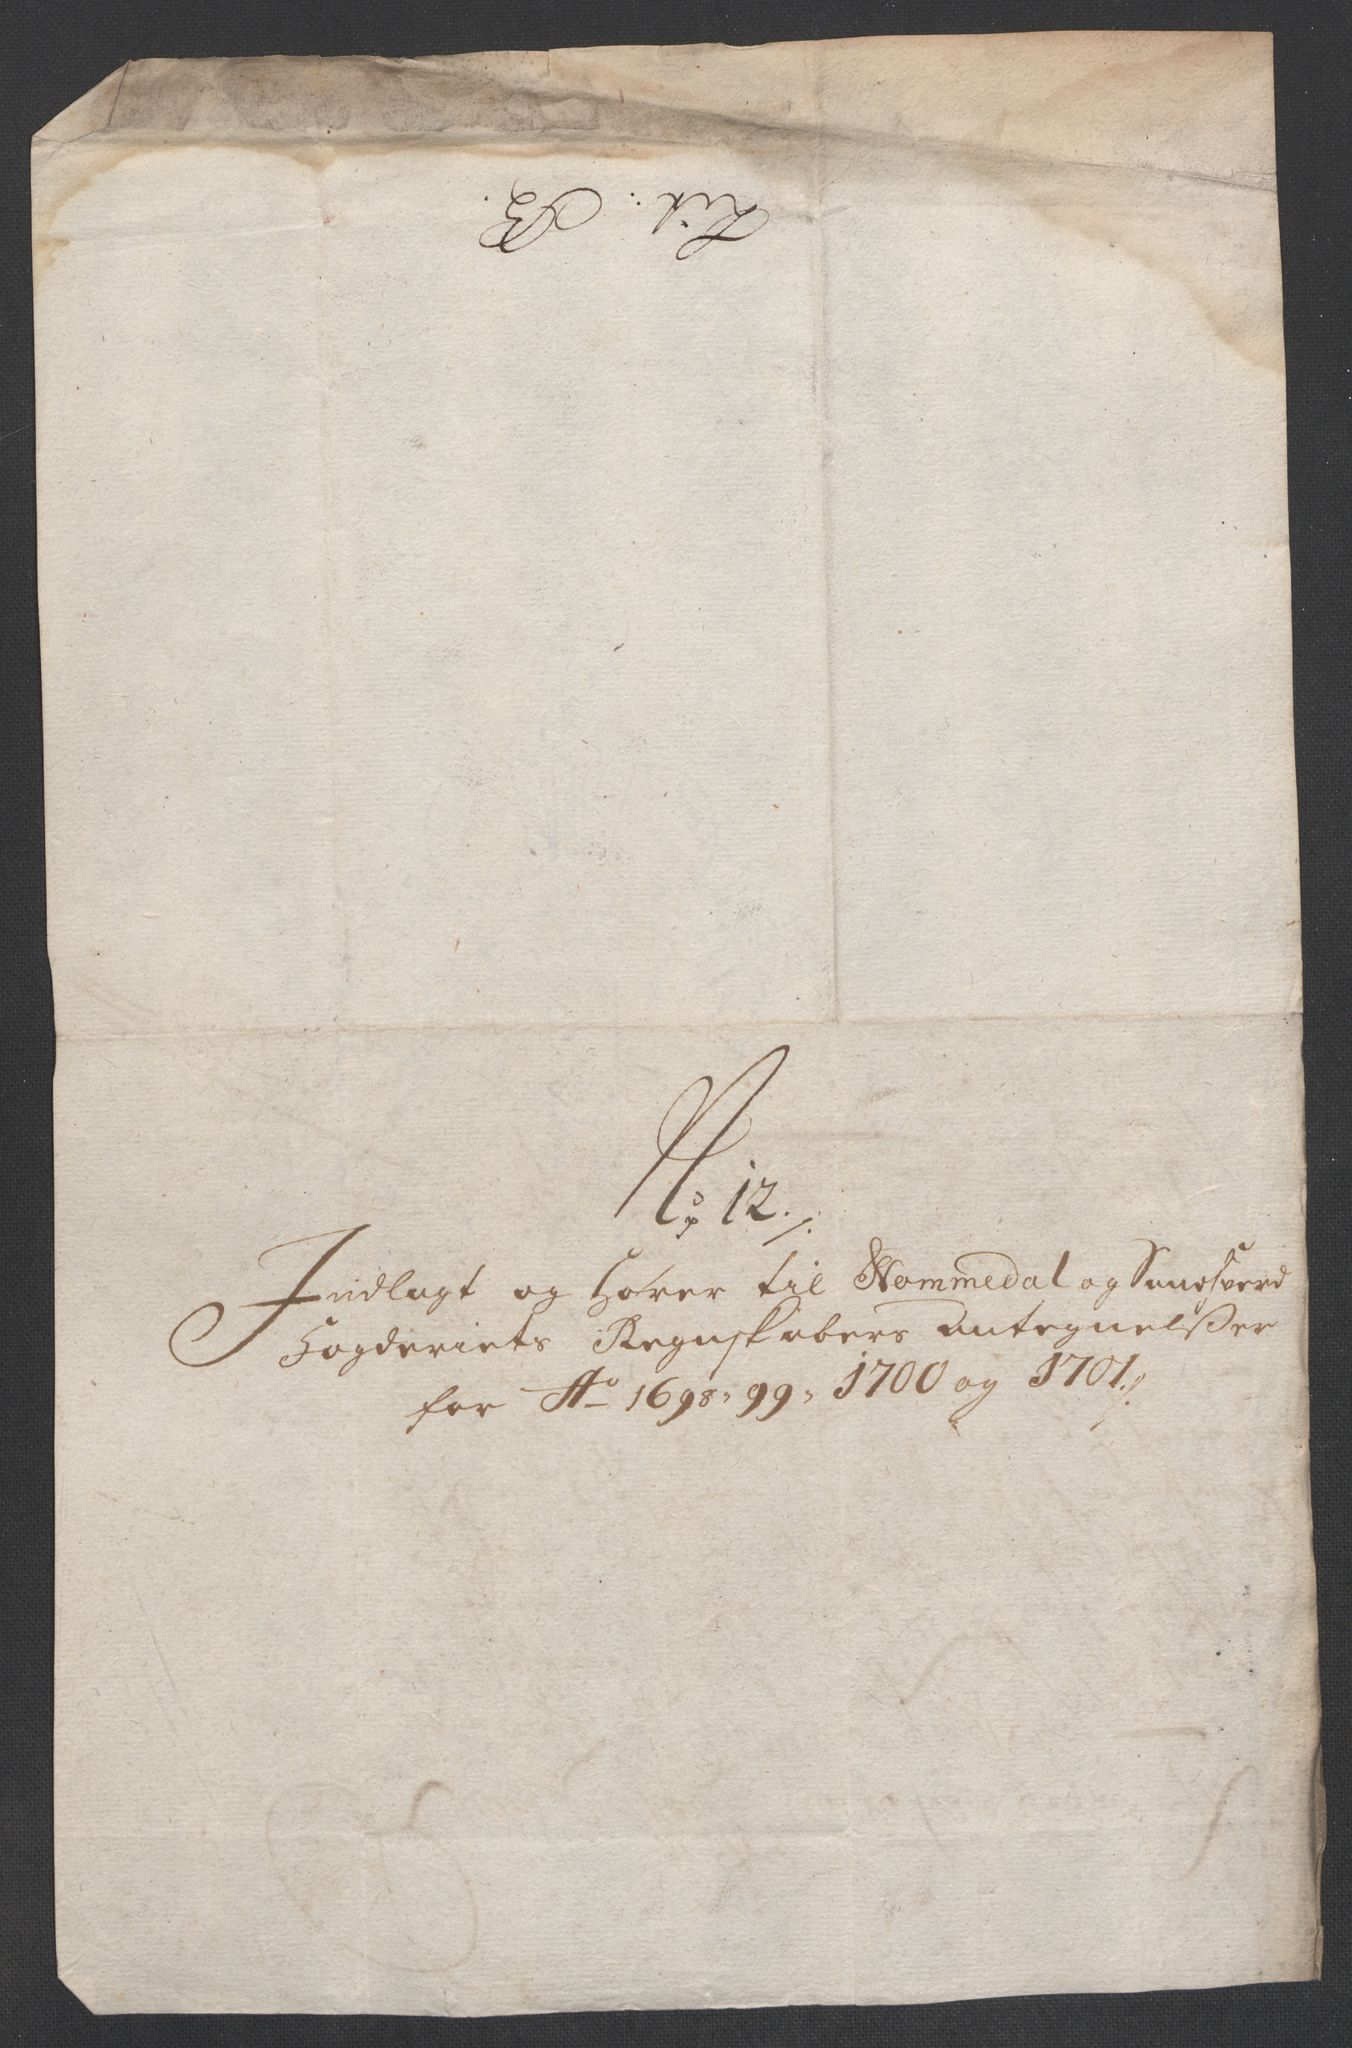 Lit: B.
No 12 ./.
Indlagt og Hører til Nommedal og Sandsverd
Fogderiets Regnskabers Antegnelsser
for Ao 1698, 99, 1700 og 1701 ./.